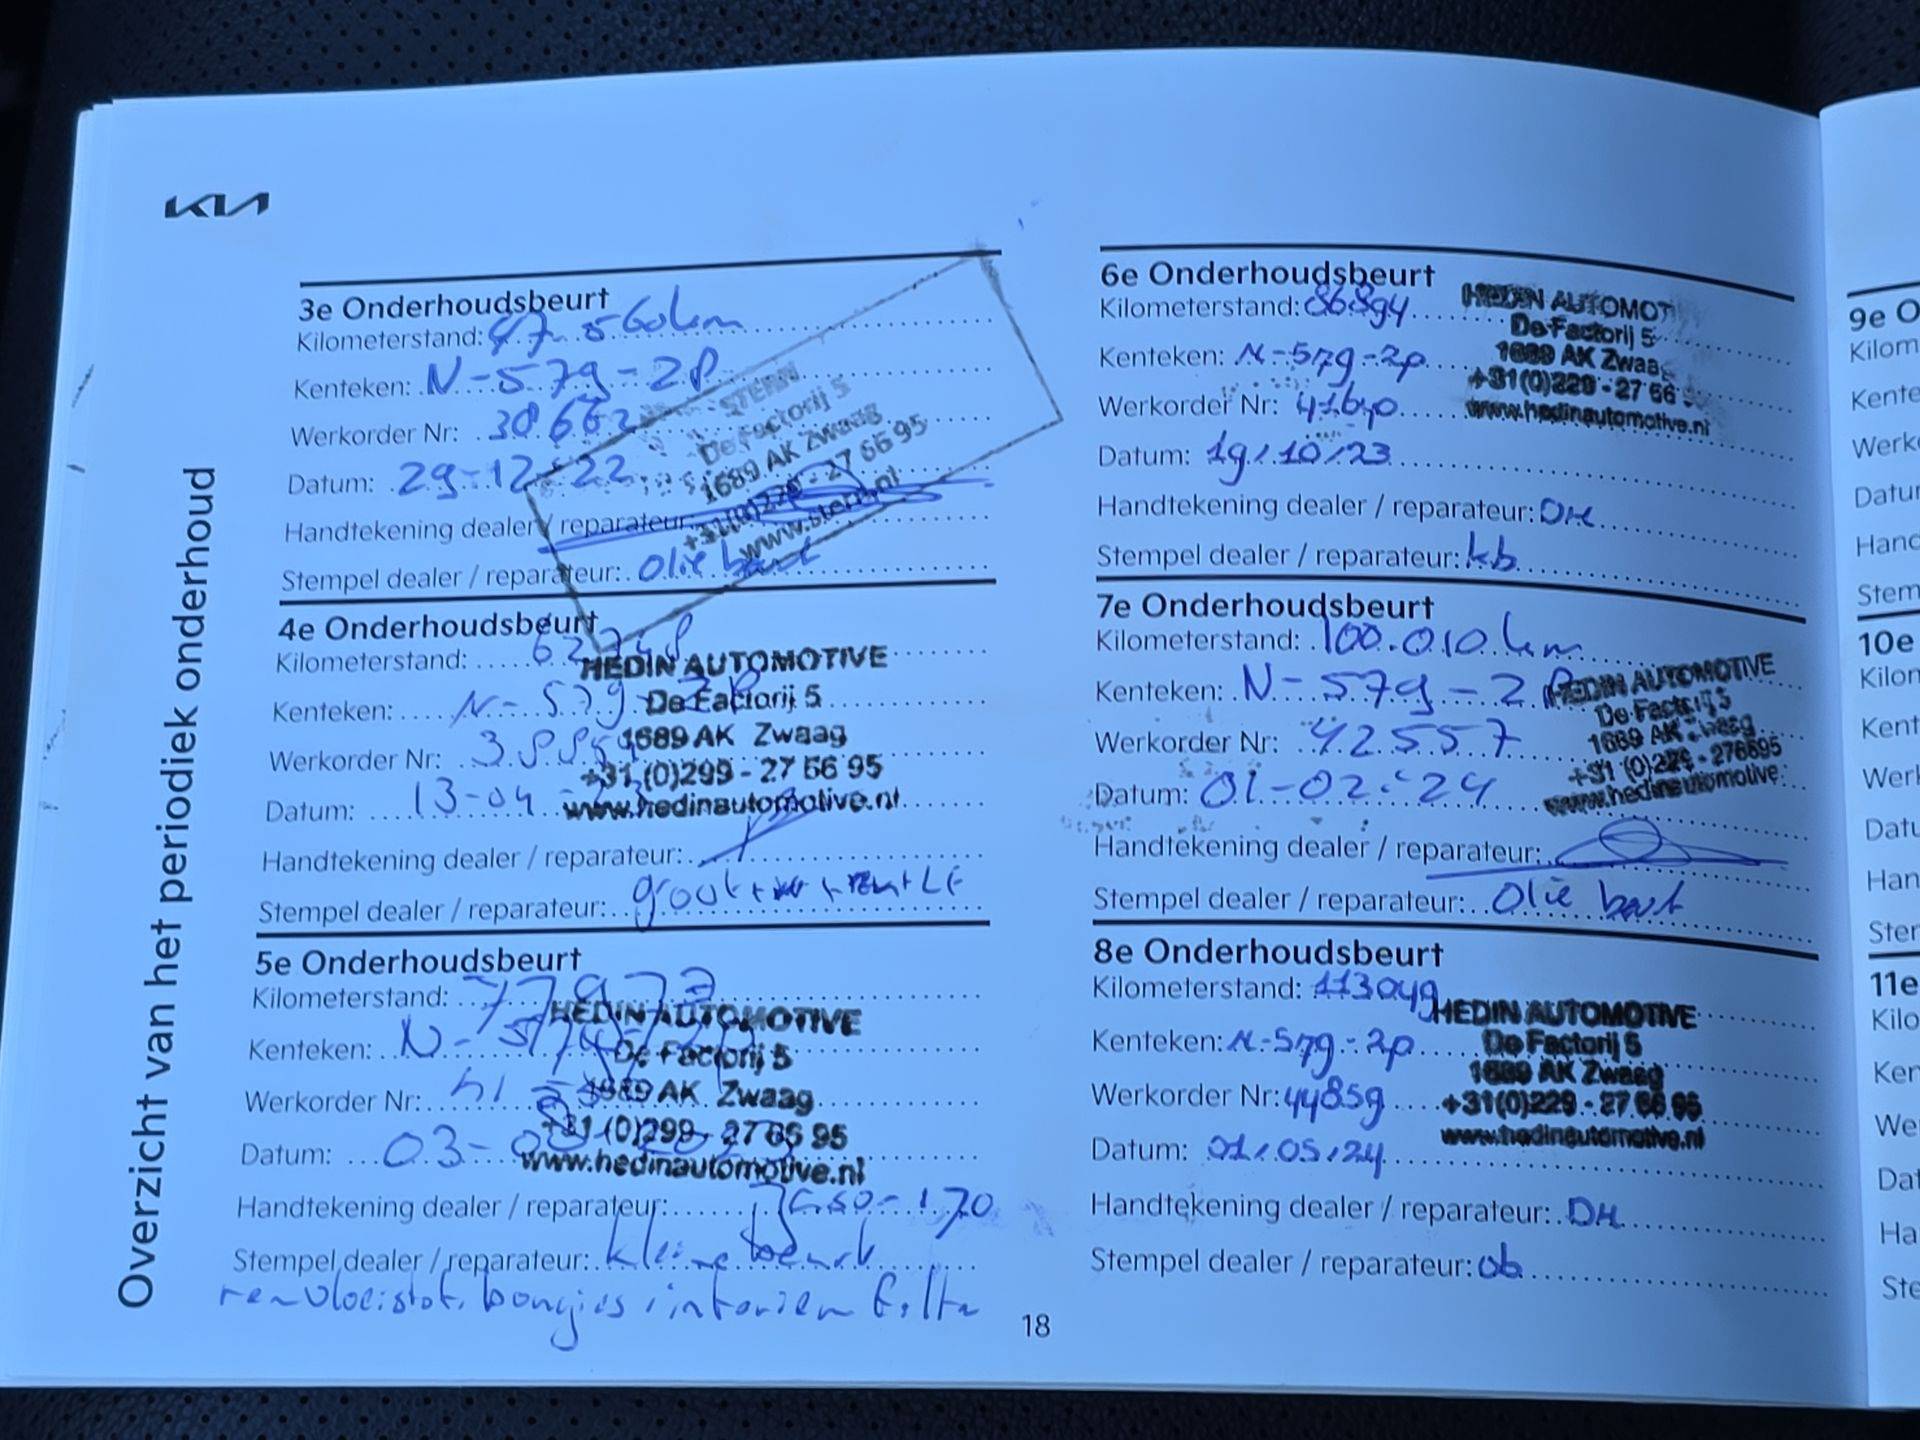 KIA
Overzicht van het periodiek onderhoud
3e Onderhoudsbeurt
Kilometerstand: 47.560km
Kenteken: N-579-ZP
Werkorder Nr: 30662
Datum: 29-12-22
Handtekening dealer / reparateur:
Stempel dealer / reparateur: Olie beurt
STERN
De Factorij 5
1689 AK Zwaag
+31(0)229 - 27 66 95
www.stern.nl
4e Onderhoudsbeurt
Kilometerstand:
Kenteken: N-579-ZP
Werkorder Nr:
Datum: 13-04-23
Handtekening dealer / reparateur:
Stempel dealer / reparateur: groot
HEDIN AUTOMOTIVE
De Factorij 5
1689 AK Zwaag
+31 (0)299 - 27 66 95
www.hedinautomotive.nl
5e Onderhoudsbeurt
Kilometerstand: 77973
Kenteken: N-579-ZP
Werkorder Nr:
Datum: 03-
Handtekening dealer / reparateur:
Stempel dealer / reparateur: kleine beurt
remvloeistof, bougies, interieur filter
HEDIN AUTOMOTIVE
De Factorij 5
1689 AK Zwaag
+31 (0)299 - 27 66 95
www.hedinautomotive.nl
6e Onderhoudsbeurt
Kilometerstand: 86894
Kenteken: N-579-2p
Werkorder Nr: 41640
Datum: 19/10/23
Handtekening dealer / reparateur: DH
Stempel dealer / reparateur: kb
HEDIN AUTOMOT
De Factorij 5
1689 AK Zwaag
+31(0)229 - 27 66
www.hedinautomotive.nl
7e Onderhoudsbeurt
Kilometerstand: 100.010 km
Kenteken: N-579-ZP
Werkorder Nr: 42557
Datum: 01-02-24
Handtekening dealer / reparateur:
Stempel dealer / reparateur: Olie beurt
HEDIN AUTOMOTIVE
De Factorij 5
1689 AK Zwaag
+31 (0)229 - 276695
www.hedinautomotive.
8e Onderhoudsbeurt
Kilometerstand: 113049
Kenteken: N-579-2p
Werkorder Nr: 44859
Datum: 01/05/24
Handtekening dealer / reparateur: DH
Stempel dealer / reparateur: ob
HEDIN AUTOMOTIVE
De Factorij 5
1689 AK Zwaag
+31(0)229 - 27 66 95
www.hedinautomotive.nl
18
9e O
Kilom
Kente
Werko
Datur
Hand
Stem
10e
Kilon
Kent
Werk
Datu
Han
Ster
11e
Kilo
Ken
We
Dat
Ha
Ste